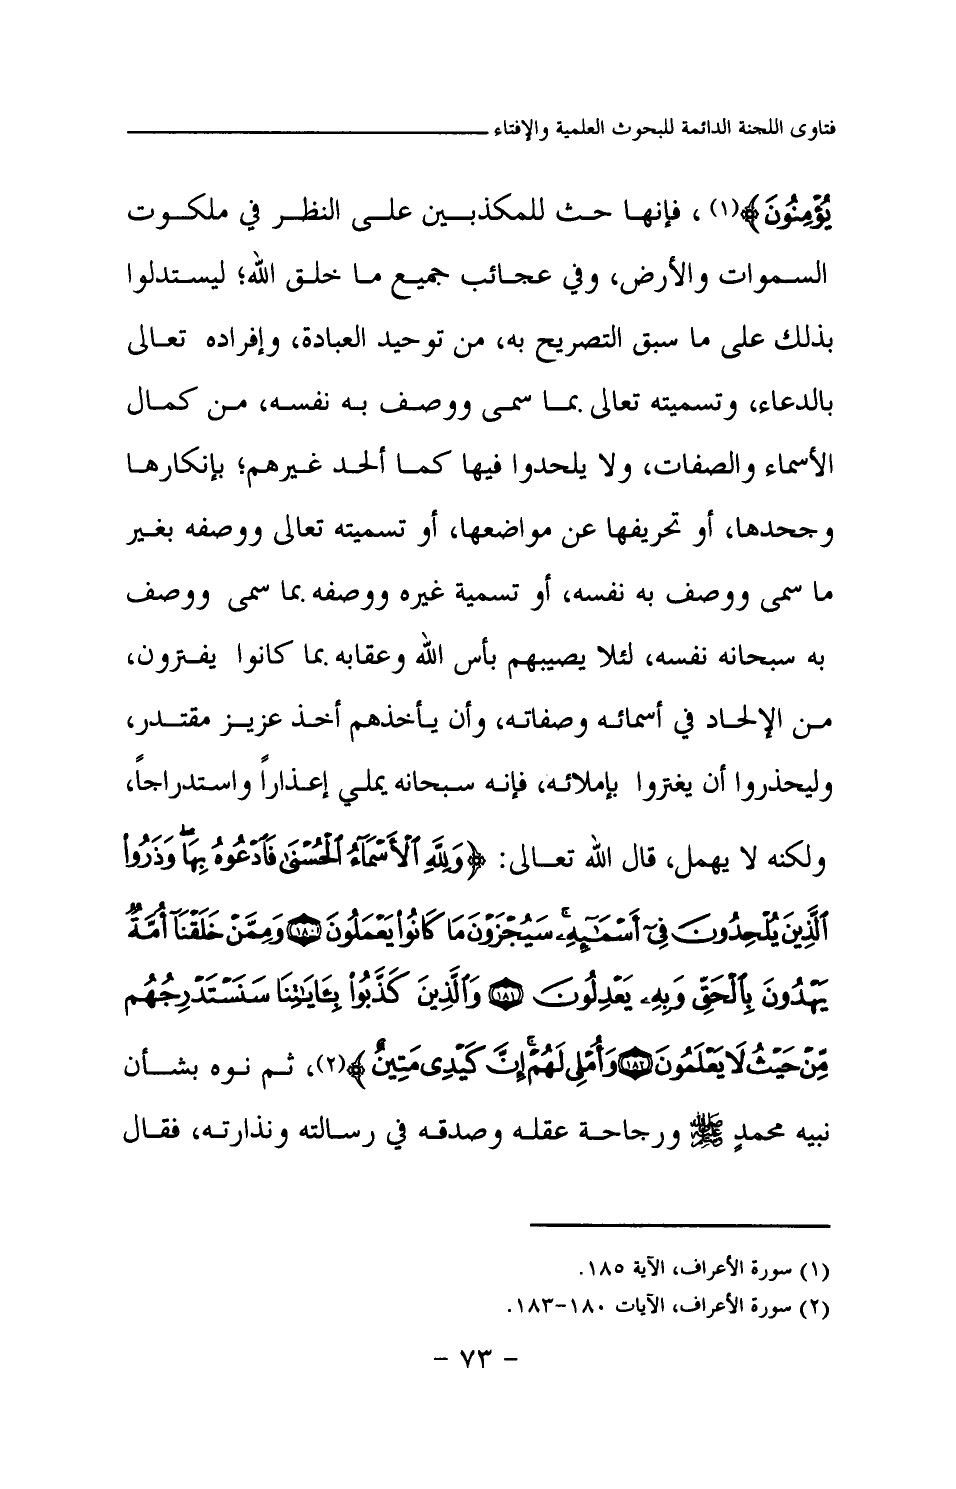 فتاوى اللجنة الدائمة للبحوث العلمية والإفتاء
يُؤۡمِنُونَ﴾(١) ، فإنها حث للمكذبين على النظر في ملكوت
السموات والأرض، وفي عجائب جميع ما خلق الله؛ ليستدلوا
بذلك على ما سبق التصريح به، من توحيد العبادة، وإفراده تعالى
بالدعاء، وتسميته تعالى بما سمى ووصف به نفسه، من كمال
الأسماء والصفات، ولا يلحدوا فيها كما ألحد غيرهم؛ بإنكارها
وجحدها، أو تحريفها عن مواضعها، أو تسميته تعالى ووصفه بغير
ما سمى ووصف به نفسه، أو تسمية غيره ووصفه بما سمى ووصف
به سبحانه نفسه، لئلا يصيبهم بأس الله وعقابه بما كانوا يفترون،
من الإلحاد في أسمائه وصفاته، وأن يأخذهم أخذ عزيز مقتدر،
وليحذروا أن يغتروا بإملائه، فإنه سبحانه يملي إعذاراً واستدراجاً،
ولكنه لا يهمل، قال الله تعالى: ﴿وَلِلَّهِ ٱلۡأَسۡمَآءُ ٱلۡحُسۡنَىٰ فَٱدۡعُوهُ بِهَاۖ وَذَرُواْ
ٱلَّذِينَ يُلۡحِدُونَ فِيٓ أَسۡمَٰٓئِهِۦۚ سَيُجۡزَوۡنَ مَا كَانُواْ يَعۡمَلُونَ ١٨٠ وَمِمَّنۡ خَلَقۡنَآ أُمَّةٞ
يَهۡدُونَ بِٱلۡحَقِّ وَبِهِۦ يَعۡدِلُونَ ١٨١ وَٱلَّذِينَ كَذَّبُواْ بِـَٔايَٰتِنَا سَنَسۡتَدۡرِجُهُم
مِّنۡ حَيۡثُ لَا يَعۡلَمُونَ ١٨٢ وَأُمۡلِي لَهُمۡۚ إِنَّ كَيۡدِي مَتِينٌ﴾(٢)، ثم نوه بشأن
نبيه محمدٍ ﷺ ورجاحة عقله وصدقه في رسالته ونذارته، فقال
(١) سورة الأعراف، الآية ١٨٥.
(٢) سورة الأعراف، الآيات ١٨٠-١٨٣.
- ٧٣ -